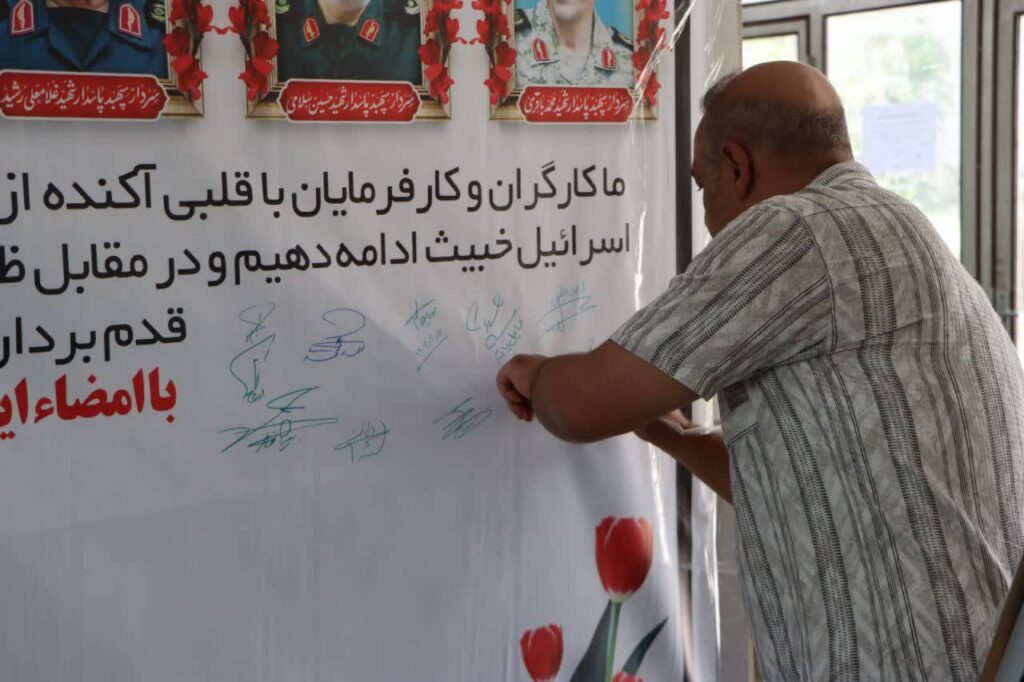 سردار سپهبد پاسدار شهید محمد باقری
سردار سپهبد پاسدار شهید حسین سلامی
سردار سپهبد پاسدار شهید غلامعلی رشید
ما کارگران و کارفرمایان با قلبی آکنده از
اسرائیل خبیث ادامه دهیم و در مقابل
قدم بردار
با امضاء